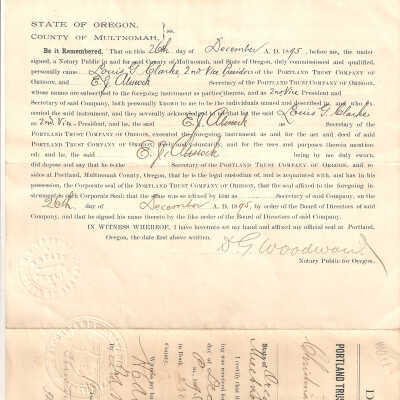 STATE OF OREGON,
COUNTY OF MULTNOMAH, ss
Be it Remembered, That on this 26th day of December A. D. 1895, before me, the under
signed, a Notary Public in and for said County of Multnomah, and State of Oregon, duly commissioned and qualified,
personally came Louis G. Clarke, 2nd Vice President of the PORTLAND TRUST COMPANY OF
OREGON, and E. J. Secretary of the PORTLAND TRUST COMPANY OF OREGON,
whose names are subscribed to the foregoing instrument as parties thereto, and as 2nd Vice President and
Secretary of said Company, both personally known to me to be the individuals named and described in, and who
said instrument, and they severally acknowledged to me that he the said Louis G. Clarke
as 2nd Vice-President, and he, the said E. J. Secretary of the
PORTLAND TRUST COMPANY OF OREGON, executed the foregoing instrument as and for the act and deed of said
PORTLAND TRUST COMPANY OF OREGON, freely and voluntarily, and for the uses and purposes therein mention
ed: and he, the said E. J. being by me duly sworn,
did depose and say that he is the Secretary of the PORTLAND TRUST COMPANY OF OREGON, and re-
sides at Portland, Multnomah County, Oregon, that he is the legal custodian of, and is acquainted with, and has in his
possession, the Corporate seal of the PORTLAND TRUST COMPANY OF OREGON, that the seal affixed to the foregoing in-
strument is such Corporate Seal: that the same was affixed by him as Secretary of said Company, on the
26th day of December A. D. 1895, by order of the Board of Directors of said
Company, and that he signed his name thereto by the like order of the Board of Directors of said Company.
IN WITNESS WHEREOF, I have hereunto set my hand and affixed my official seal at Portland,
Oregon, the date first above written.
D. G. Woodward
Notary Public for Oregon.
PORTLAND TRUS
I certify that
County.
day of
in Book